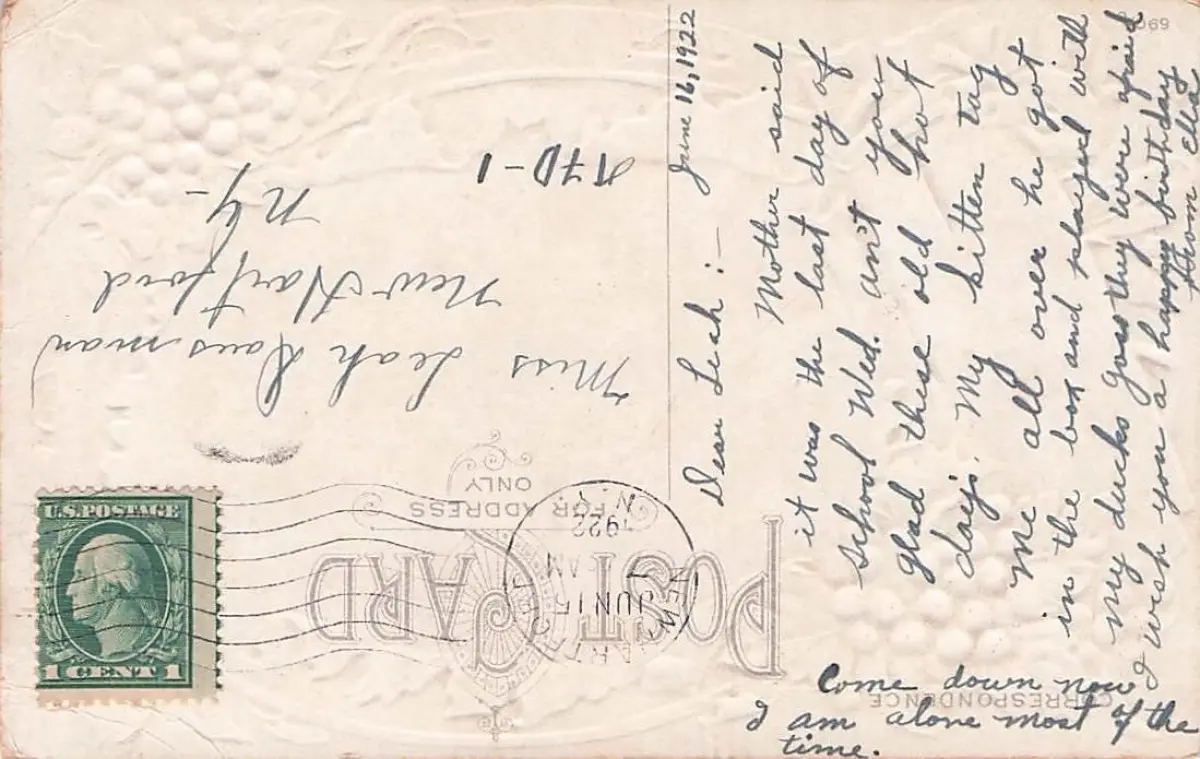 POST CARD
FOR ADDRESS
ONLY
CORRESPONDENCE
U.S. POSTAGE
1 CENT 1
NEW HARTFORD
JUN 15
AM
1922
N.Y.
Miss Leah
New Hartford
N.Y-
-1
June 16, 1922
Dear Leah :-
Mother said
it was the last day of
school Wed. an't you
glad these old hot
days. My kitten tag
me all over he got
in the box and played with
my ducks they were afraid
I wish you a happy birthday
from Ella
Come down now
I am alone most of the
time.